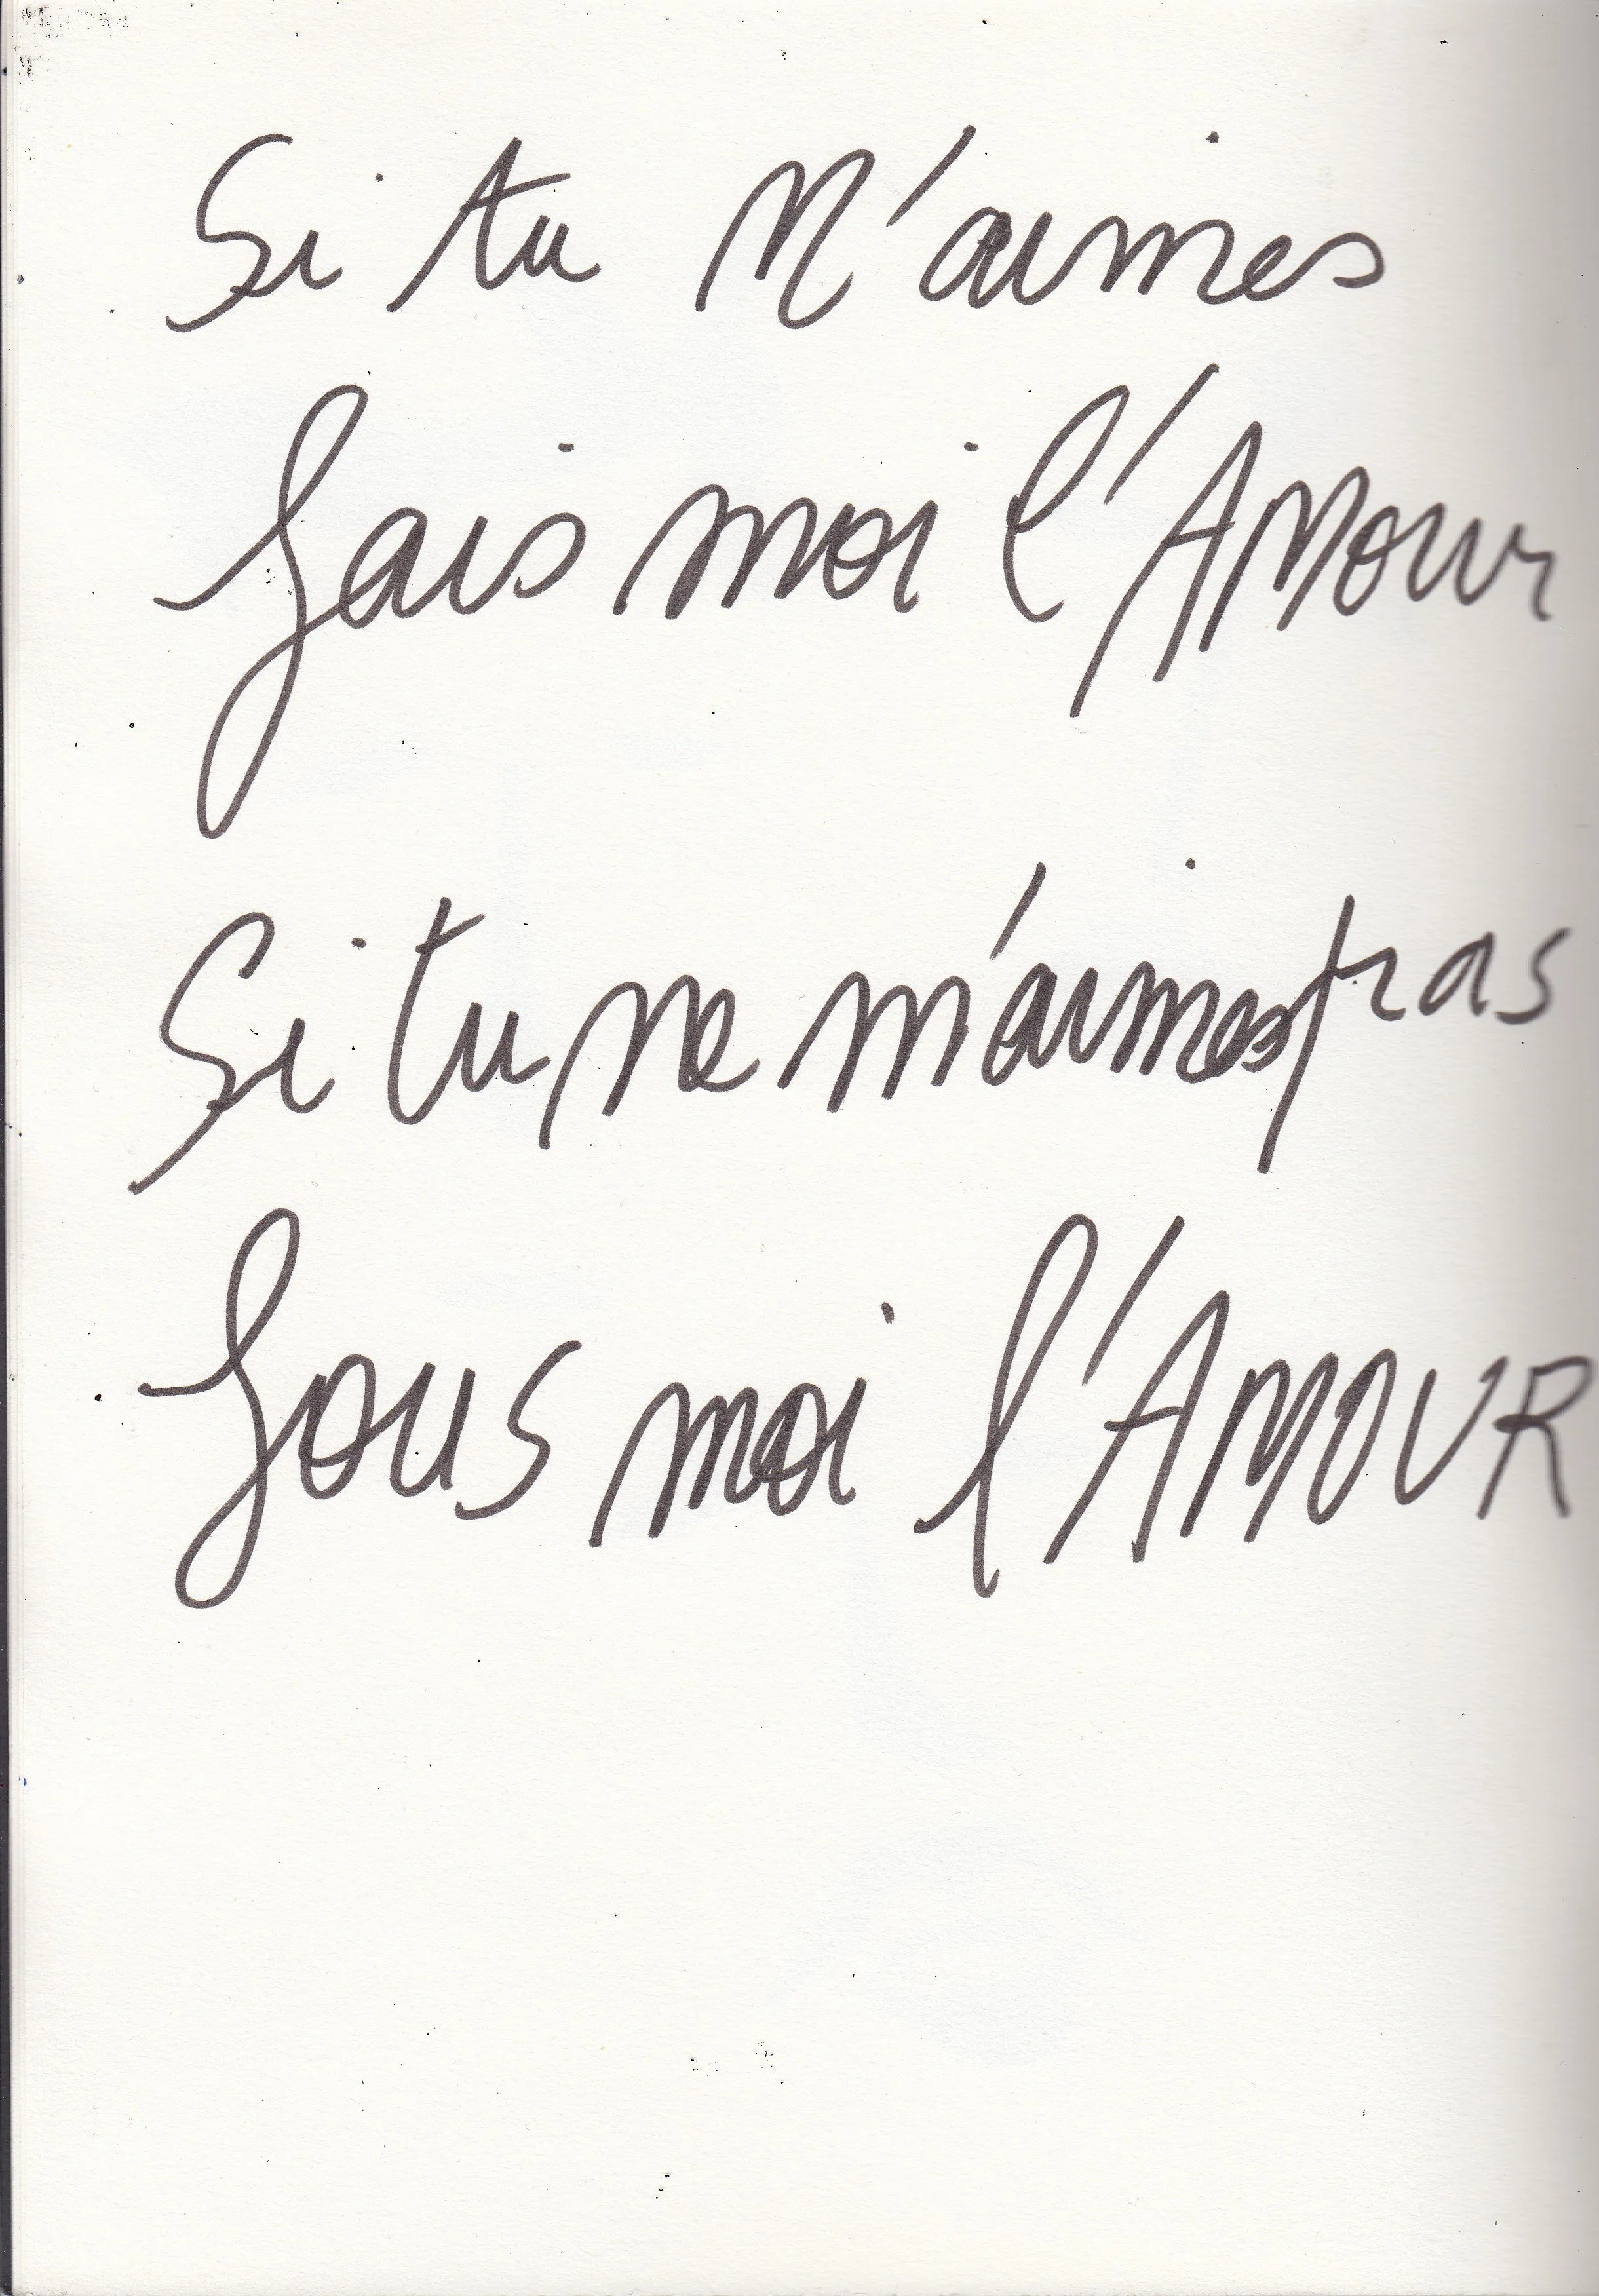 Si tu M'aimes
fais moi l'AMour
Si tu ne m'aimes pas
fous moi l'AMOUR